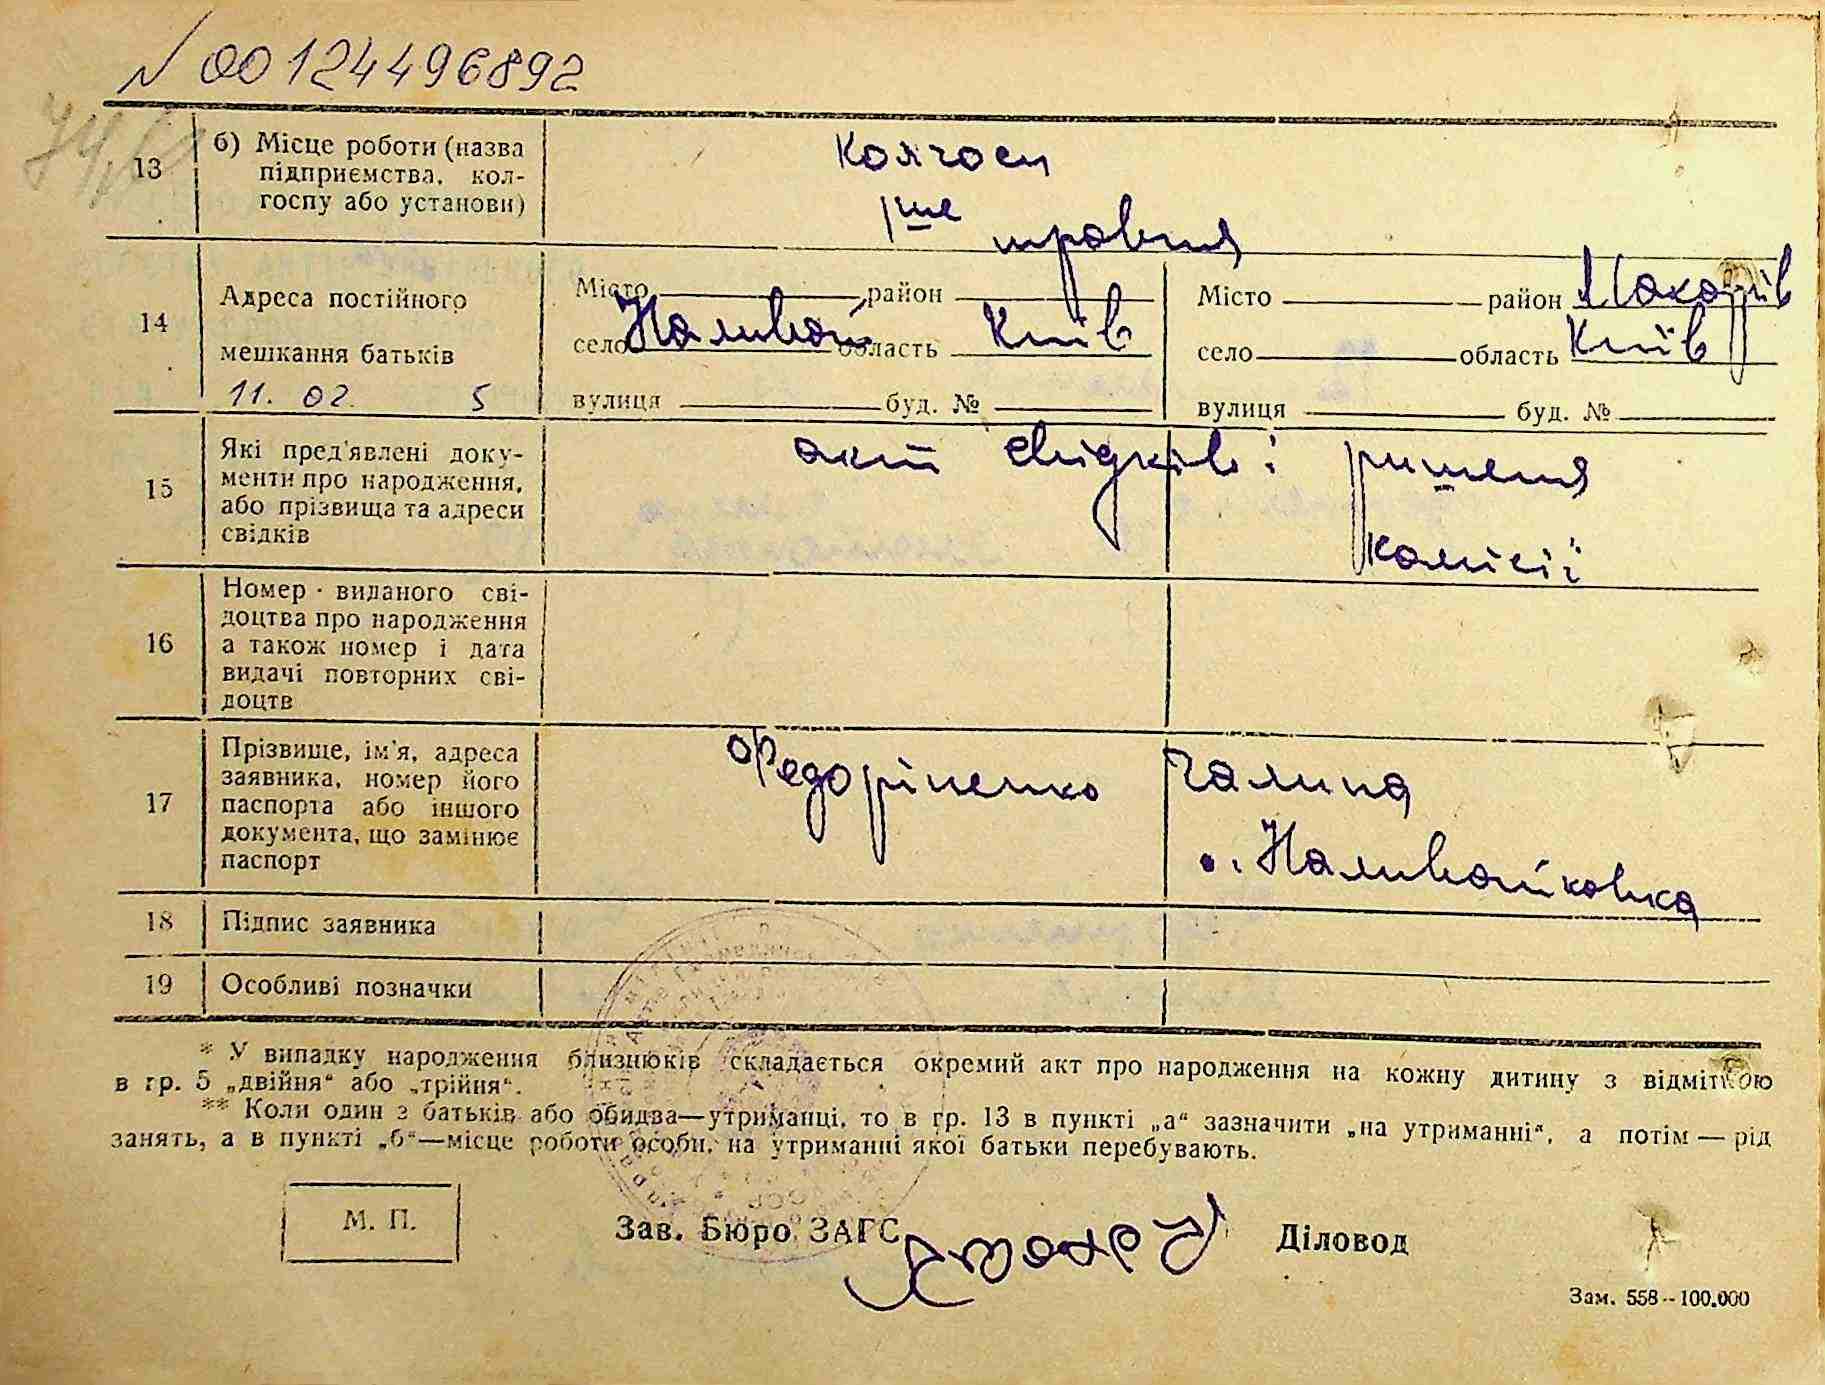 N 00124496892
13
б) Місце роботи (назва
підприємства, кол-
госпу або установи)
Колгосп
1ше травня
14
Адреса постійного
мешкання батьків
11. 02. 5
Місто район
село Наливай область Київ
вулиця буд. №
Місто район Макарів
село область Київ
вулиця буд. №
15
Які пред'явлені доку-
менти про народження,
або прізвища та адреси
свідків
акт свідків і рішення
комісії
16
Номер виданого сві-
доцтва про народження
а також номер і дата
видачі повторних сві-
доцтв
17
Прізвище, ім'я, адреса
заявника, номер його
паспорта або іншого
документа, що замінює
паспорт
Федоріненко Галина
с. Наливайковка
18 Підпис заявника
19 Особливі позначки
* У випадку народження близнюків складається окремий акт про народження на кожну дитину з відміткою
в гр. 5 „двійня“ або „трійня“.
** Коли один з батьків або обидва—утриманці, то в гр. 13 в пункті „а“ зазначити „на утриманні“, а потім — рід
занять, а в пункті „б“—місце роботи особи, на утриманні якої батьки перебувають.
М. П.
Зав. Бюро ЗАГС
Діловод
Зам. 558--100.000